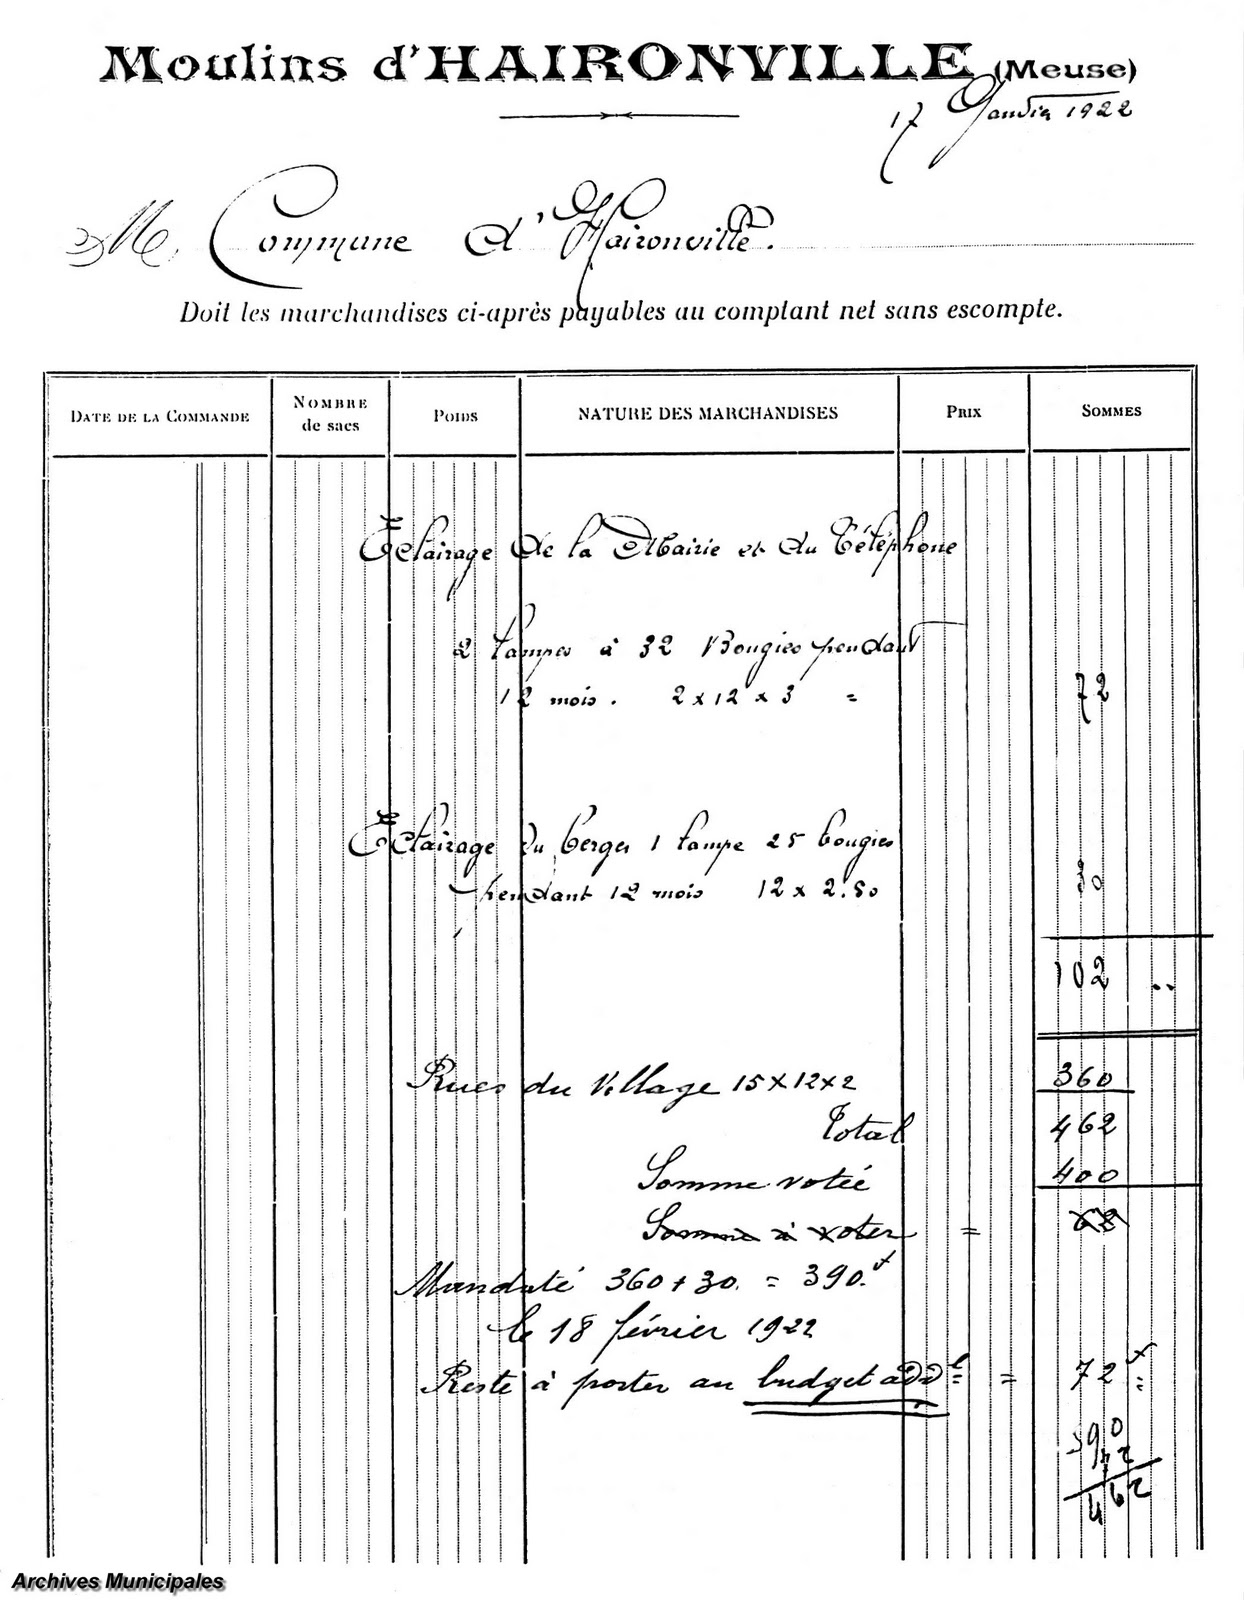 Moulins d'HAIRONVILLE (Meuse)
17 Janvier 1922
M. Commune d'Haironville.
Doit les marchandises ci-après payables au comptant net sans escompte.
DATE DE LA COMMANDE NOMBRE de sacs POIDS NATURE DES MARCHANDISES PRIX SOMMES
Eclairage de la Mairie et du Téléphone
2 lampes à 32 Bougies pendant
12 mois. 2 x 12 x 3 = 72
Eclairage du berger 1 lampe 25 bougies
pendant 12 mois 12 x 2.50 30
102 ..
Rues du Village 15 x 12 x 2 360
Total 462
Somme votée 400
Somme à voter = 62
Mandaté 360 + 30. = 390.f
le 18 février 1922
Reste à porter au budget addl = 72 f
390
72
462
Archives Municipales